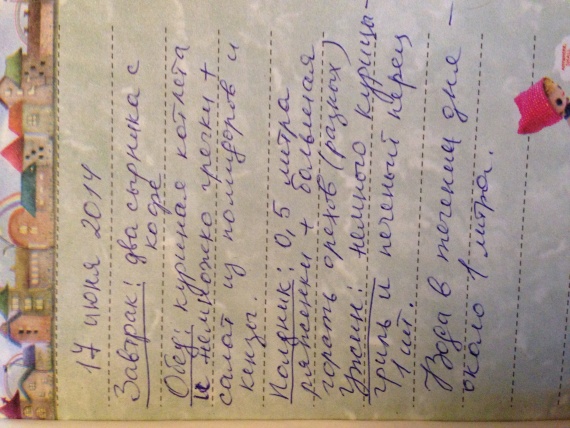 17 июня 2014
Завтрак: два сырника с
кофе
Обед: куриная котлета
и немножко гречки +
салат из помидоров и
кенцы.
Полдник: 0,5 литра
ряженки + большая
горсть орехов (разных)
Ужин: немного курицы-
гриль и печеный перец
1 шт.
Вода в течении дня –
около 1 литра.